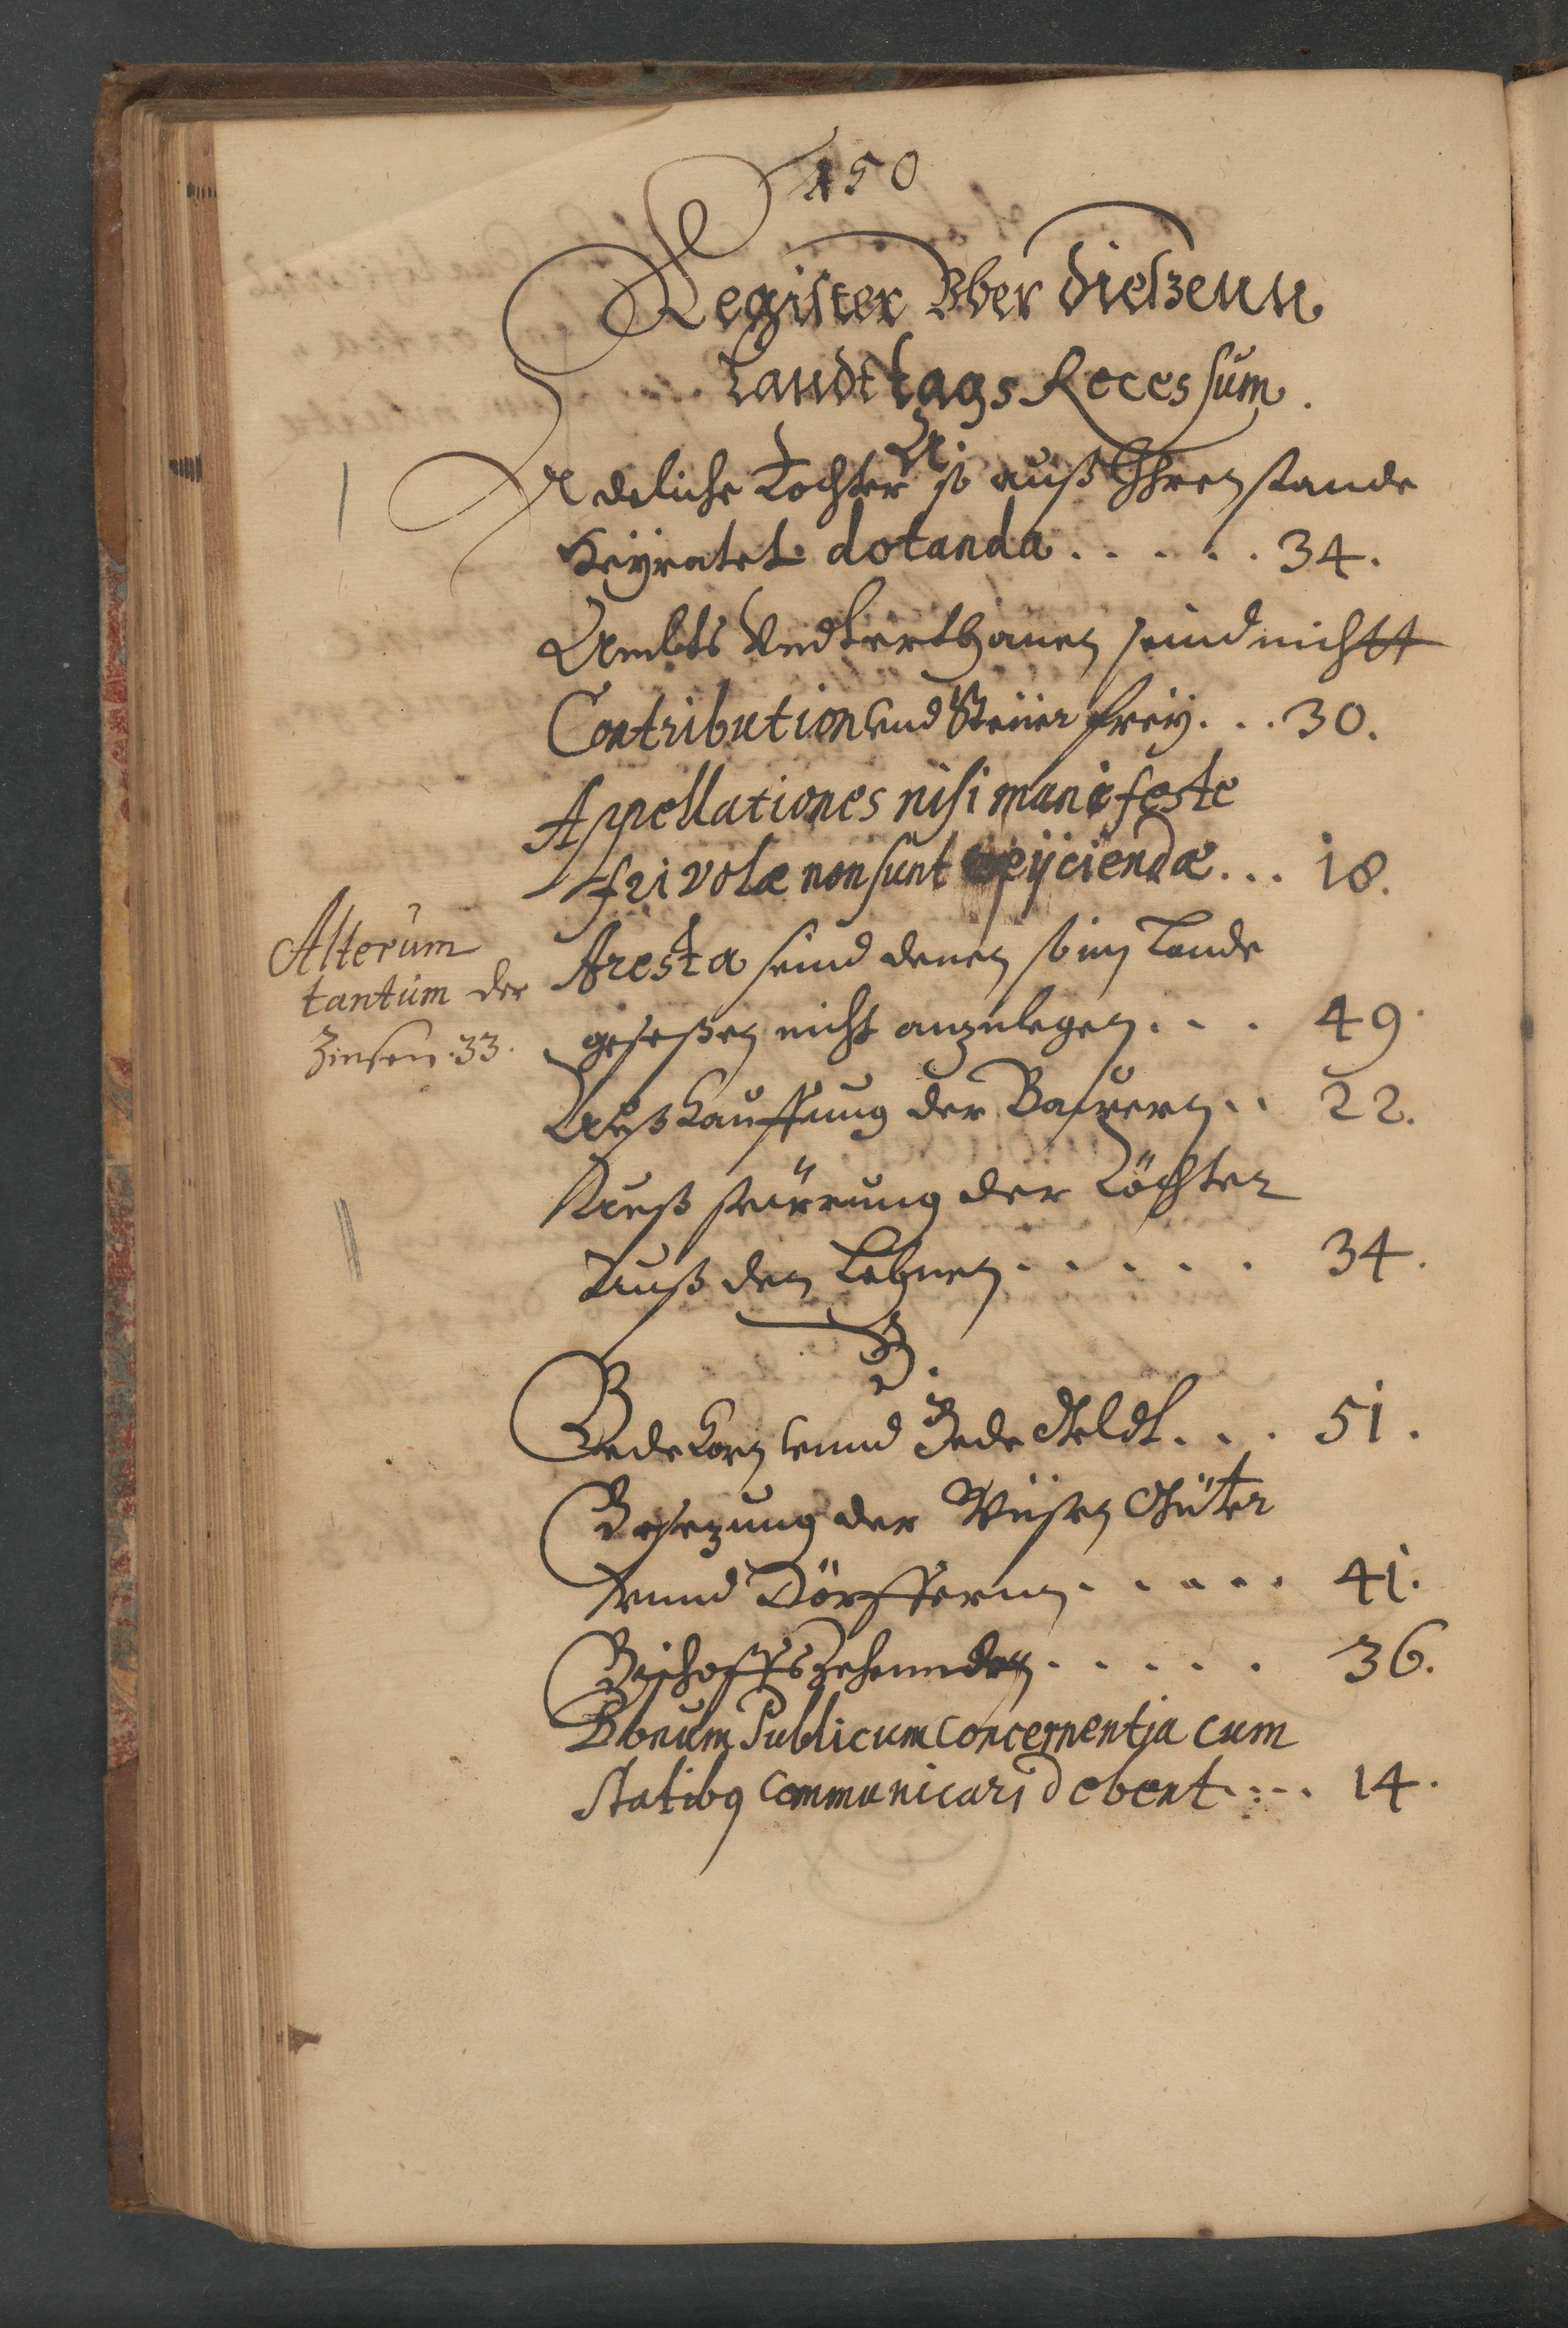 150
Register Vber dießenn
Landttags Recessum.
A.
Adeliche Tochter so auß Ihren stande
Heyratet dotanda . . . . . 34.
Ambts Vndterthanen seind nichtt
Contribution vnd Steüer frey . . . 30.
Appellationes nisi manifeste
frivolæ non sunt rejiciendæ . . . 18.
Alterum
tantum der
Zinsen. 33.
Aresta seind denen so im Lande
geseßen nicht anzulegen . . . 49.
Außkauffung der Baüren . . 22.
Auß steürung der Töchter
Auß den Lehnen . . . . . 34.
B.
Bedekorn vnnd Bede Geldt . . . 51.
Besezung der Wüsten Güter
vnnd Dörffernn . . . . . 41.
Bischoffs Zehennden . . . . . 36.
Bonum Publicum Concernentia cum
statibus communicari debent . . . . 14.